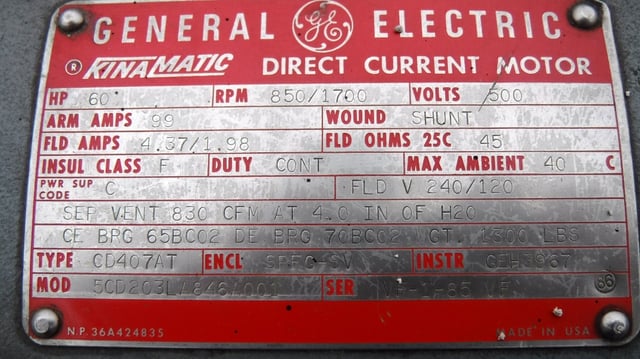 GENERAL GE ELECTRIC
® KINAMATIC DIRECT CURRENT MOTOR
HP 60 RPM 850/1700 VOLTS 500
ARM AMPS 99 WOUND SHUNT
FLD AMPS 4.37/1.98 FLD OHMS 25C 45
INSUL CLASS F DUTY CONT MAX AMBIENT 40 C
PWR SUP CODE C FLD V 240/120
SEP VENT 830 CFM AT 4.0 IN OF H2O
CE BRG 65BC02 DE BRG 70BC02 GT. 1300 LBS
TYPE CD407AT ENCL SPEC SV INSTR GEH3967
MOD 5CD203LA846A001 SER
N.P. 36A424835 MADE IN USA